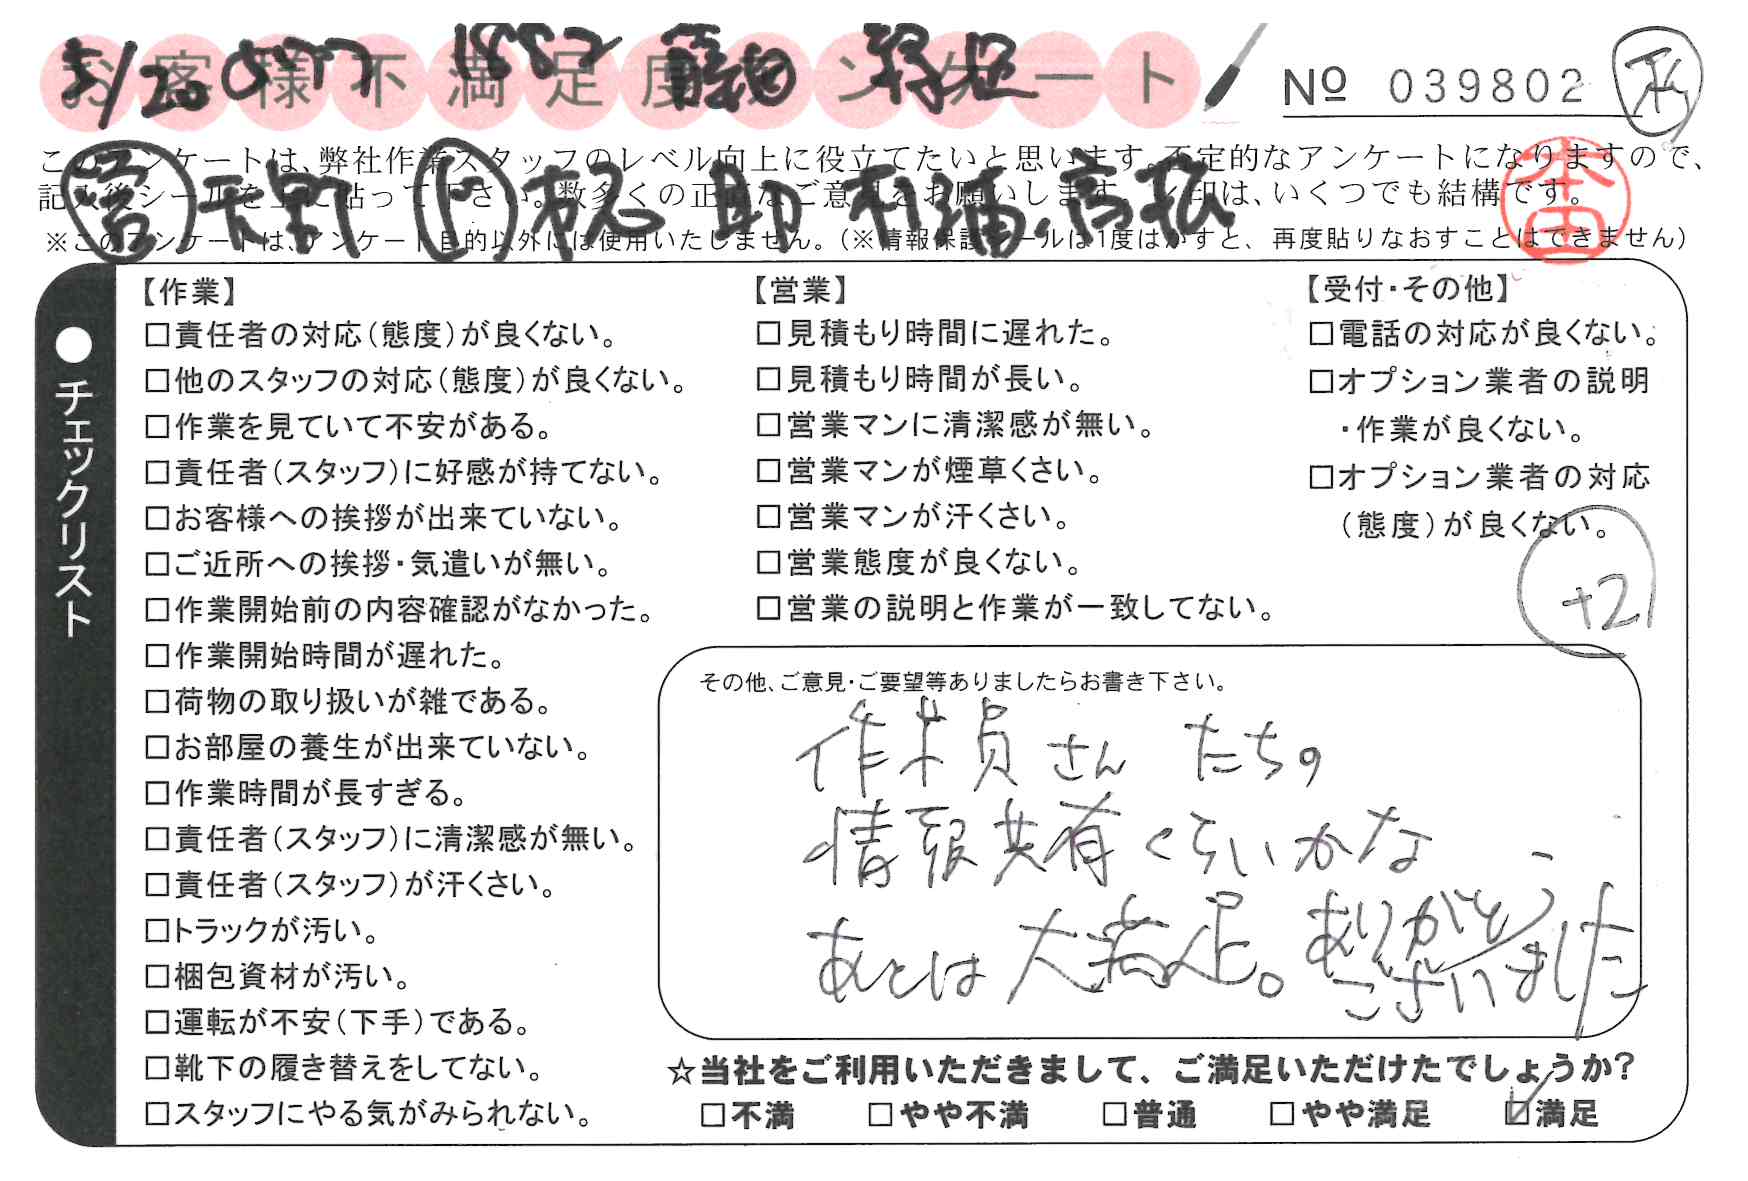 お客様不満足度アンケート
5/20
No 039802
このアンケートは、弊社作業スタッフのレベル向上に役立てたいと思います。否定的なアンケートになりますので、
記入後シールを上に貼って下さい。数多くの正直なご意見をお願いします。レ印は、いくつでも結構です。
※このアンケートは、アンケート目的以外には使用いたしません。(※情報保護シールは1度はがすと、再度貼りなおすことはできません)
営
本田
●チェックリスト
【作業】
□責任者の対応(態度)が良くない。
□他のスタッフの対応(態度)が良くない。
□作業を見ていて不安がある。
□責任者(スタッフ)に好感が持てない。
□お客様への挨拶が出来ていない。
□ご近所への挨拶・気遣いが無い。
□作業開始前の内容確認がなかった。
□作業開始時間が遅れた。
□荷物の取り扱いが雑である。
□お部屋の養生が出来ていない。
□作業時間が長すぎる。
□責任者(スタッフ)に清潔感が無い。
□責任者(スタッフ)が汗くさい。
□トラックが汚い。
□梱包資材が汚い。
□運転が不安(下手)である。
□靴下の履き替えをしてない。
□スタッフにやる気がみられない。
【営業】
□見積もり時間に遅れた。
□見積もり時間が長い。
□営業マンに清潔感が無い。
□営業マンが煙草くさい。
□営業マンが汗くさい。
□営業態度が良くない。
□営業の説明と作業が一致してない。
【受付・その他】
□電話の対応が良くない。
□オプション業者の説明
・作業が良くない。
□オプション業者の対応
(態度)が良くない。
+21
その他、ご意見・ご要望等ありましたらお書き下さい。
作業員さんたちの
情報共有くらいかな
あとは大満足。ありがとう
ございました
☆当社をご利用いただきまして、ご満足いただけたでしょうか?
□不満 □やや不満 □普通 □やや満足 ☑満足